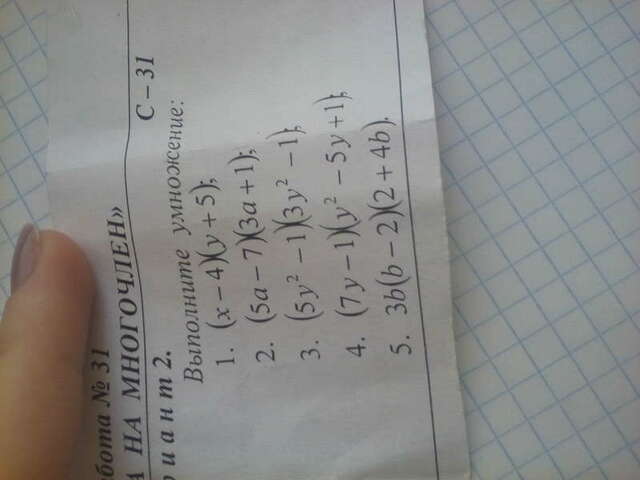 бота № 31
А НА МНОГОЧЛЕН»
риант 2.
С – 31
Выполните умножение:
1. (x − 4)(y + 5);
2. (5a − 7)(3a + 1);
3. (5y² − 1)(3y² − 1);
4. (7y − 1)(y² − 5y + 1);
5. 3b(b − 2)(2 + 4b).